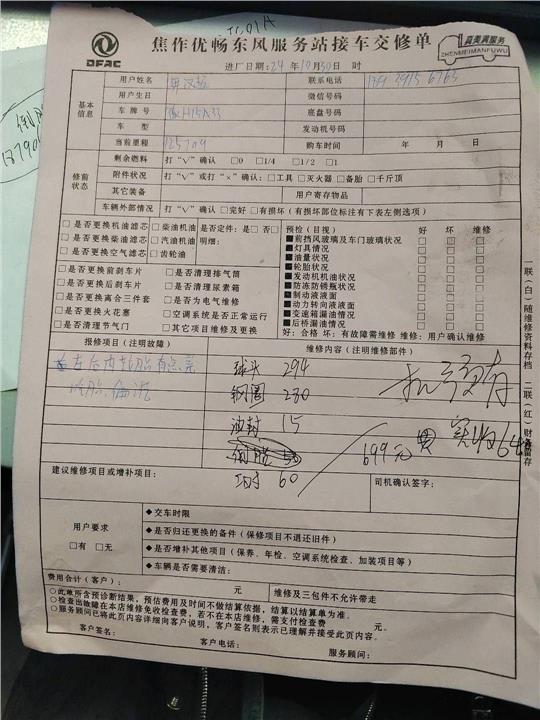 焦作优畅东风服务站接车交修单
DFAC
真美真服务
ZHENMEIMANFUWU
进厂日期:24年10月30日 时
用户姓名 联系电话
基本信息
用户生日 微信号码
车牌号 底盘号码
车型 发动机号码
当前里程 125709 购车时间 年 月 日
修前状态
剩余燃料 打“√”确认 □0 □1/4 □1/2 □1
附件状况 打“√”或打“×”确认:□工具 □灭火器 □备胎 □千斤顶
其它装备 用户寄存物品
车辆外部情况 打“√”确认 □完好 □有损坏(有损坏部位标注有下表左侧选项)
□是否更换机油滤芯 □柴油机油 是否定件:是□否□
□是否更换柴油滤芯 □汽油机油 明细:
□是否更换空气滤芯 □齿轮油
□是否更换前刹车片 □是否清理排气筒
□是否更换后刹车片 □是否清理尿素箱
□是否更换离合三件套 □是否为电气维修
□是否更换火花塞 □空调系统是否正常运行
□是否清理节气门 □其它项目维修及更换
预检(目视) 好 坏 维修
■前挡风玻璃及车门玻璃状况 □ □ □
■灯具情况 □ □ □
■油量状况 □ □ □
■轮胎状况 □ □ □
■发动机机油状况 □ □ □
■防冻防锈瓶状况 □ □ □
■制动液液面 □ □ □
■动力转向液液面 □ □ □
■变速箱漏油情况 □ □ □
■后桥漏油情况 □ □ □
好:合格 坏:有故障需维修 维修:用户确认维修
报修项目(注明故障) 维修内容(注明维修部件)
左后内轮胎有点晃
球头 294
钢圈 280
油封 15
699元
工时 60
建议维修项目或增补项目:
司机确认签字:
用户要求
□有 □无
◆交车时限
◆是否归还更换的备件(保修项目不退还旧件)
◆是否增补其他项目(保养、年检、空调系统检查、加装项目等)
◆车辆是否需要清洁:
费用合计(客户): 元 维修及三包件不允许带走
○此单所含预诊断结果,预估费用及时间不做结算依据,结算以结算单为准。
○检查出故障在本店维修免收检查费,若不在本店维修,需支付检查费 元。
○服务顾问已将此页内容详细向客户说明,客户签名则表示已理解并接受此页内容。
客户签名:
客户电话:
服务顾问:
一联(白)随维修资料存档 二联(红)财务留存